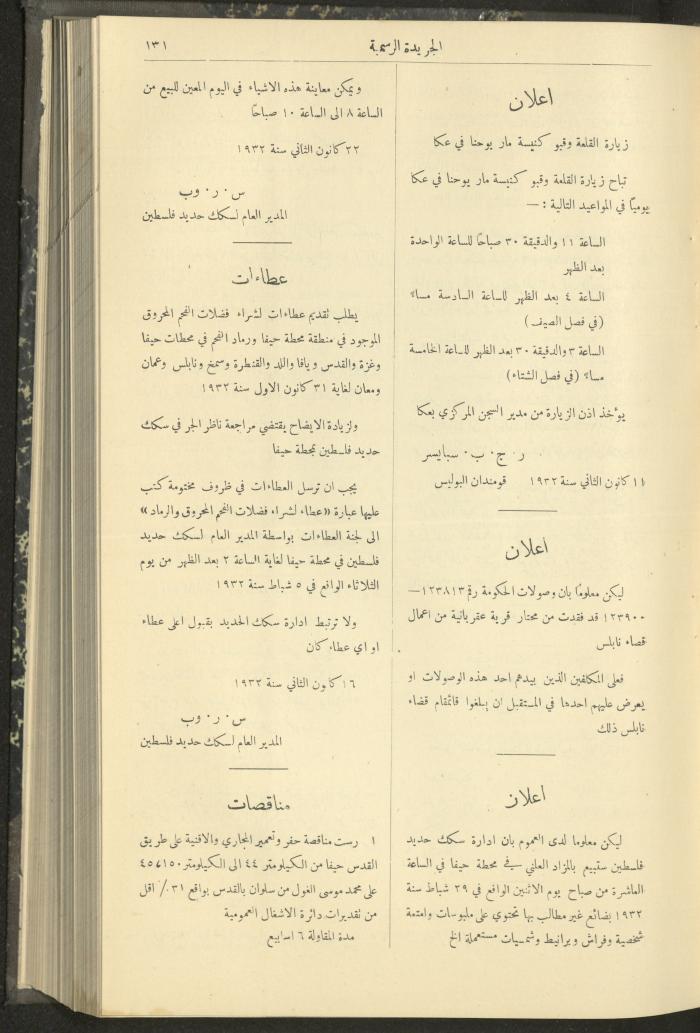 الجريدة الرسمية
١٣١
اعلان
زيارة القلعة وقبو كنيسة مار يوحنا في عكا
تباح زيارة القلعة وقبو كنيسة مار يوحنا في عكا
يوميًا في المواعيد التالية : —
الساعة ١١ والدقيقة ٣٠ صباحًا للساعة الواحدة
بعد الظهر
الساعة ٤ بعد الظهر للساعة السادسة مساءً
(في فصل الصيف)
الساعة ٣ والدقيقة ٣٠ بعد الظهر للساعة الخامسة
مساءً (في فصل الشتاء)
يؤخذ اذن الزيارة من مدير السجن المركزي بعكا
ر . ج . ب . سبايسر
١١ كانون الثاني سنة ١٩٣٢ قومندان البوليس
اعلان
ليكن معلومًا بان وصولات الحكومة رقم ١٢٣٨١٣—
١٢٣٩٠٠ قد فقدت من مختار قرية عقربانية من اعمال
قضاء نابلس
فعلى المكلفين الذين بيدهم احد هذه الوصولات او
يعرض عليهم احدها في المستقبل ان يبلغوا قائمقام قضاء
نابلس ذلك
اعلان
ليكن معلوما لدى العموم بان ادارة سكك حديد
فلسطين ستبيع بالمزاد العلني في محطة حيفا في الساعة
العاشرة من صباح يوم الاثنين الواقع في ٢٩ شباط سنة
١٩٣٢ بضائع غير مطالب بها تحتوي على ملبوسات وامتعة
شخصية وفراش وبرانيط وشمسيات مستعملة الخ
ويمكن معاينة هذه الاشياء في اليوم المعين للبيع من
الساعة ٨ الى الساعة ١٠ صباحًا
٢٢ كانون الثاني سنة ١٩٣٢
س . ر . وب
المدير العام لسكك حديد فلسطين
عطاءات
يطلب تقديم عطاءات لشراء فضلات الفحم المحروق
الموجود في منطقة محطة حيفا ورماد الفحم في محطات حيفا
وغزة والقدس ويافا واللد والقنطرة وسمخ ونابلس وعمان
ومعان لغاية ٣١ كانون الاول سنة ١٩٣٢
ولزيادة الايضاح يقتضي مراجعة ناظر الجر في سكك
حديد فلسطين بمحطة حيفا
يجب ان ترسل العطاءات في ظروف مختومة كتب
عليها عبارة «عطاء لشراء فضلات الفحم المحروق والرماد»
الى لجنة العطاءات بواسطة المدير العام لسكك حديد
فلسطين في محطة حيفا لغاية الساعة ٢ بعد الظهر من يوم
الثلاثاء الواقع في ٥ شباط سنة ١٩٣٢
ولا ترتبط ادارة سكك الحديد بقبول اعلى عطاء
او اي عطاء كان
١٦ كانون الثاني سنة ١٩٣٢
س . ر . وب
المدير العام لسكك حديد فلسطين
مناقصات
١ رست مناقصة حفر وتعمير المجاري والاقنية على طريق
القدس حيفا من الكيلومتر ٤٤ الى الكيلومتر ٤٥٧١٥٠
على محمد موسى الغول من سلوان بالقدس بواقع ٣١٪ اقل
من تقديرات دائرة الاشغال العمومية
مدة المقاولة ٦ اسابيع